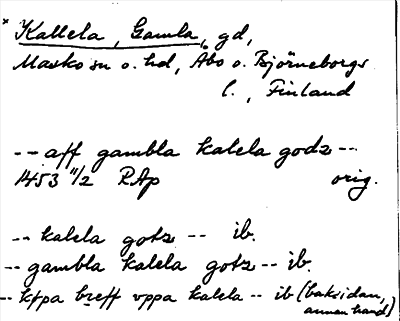 * Kallela, Gamla, gd,
Masko sn o. hd, Åbo o. Björneborgs
l., Finland
-- aff gambla kalela godz --
1453 11/2 RAp orig.
-- kalela gotz -- ib.
-- gambla kalela gotz -- ib.
-- kfpa breff vppa kalela -- ib (baksidan,
annan hand)